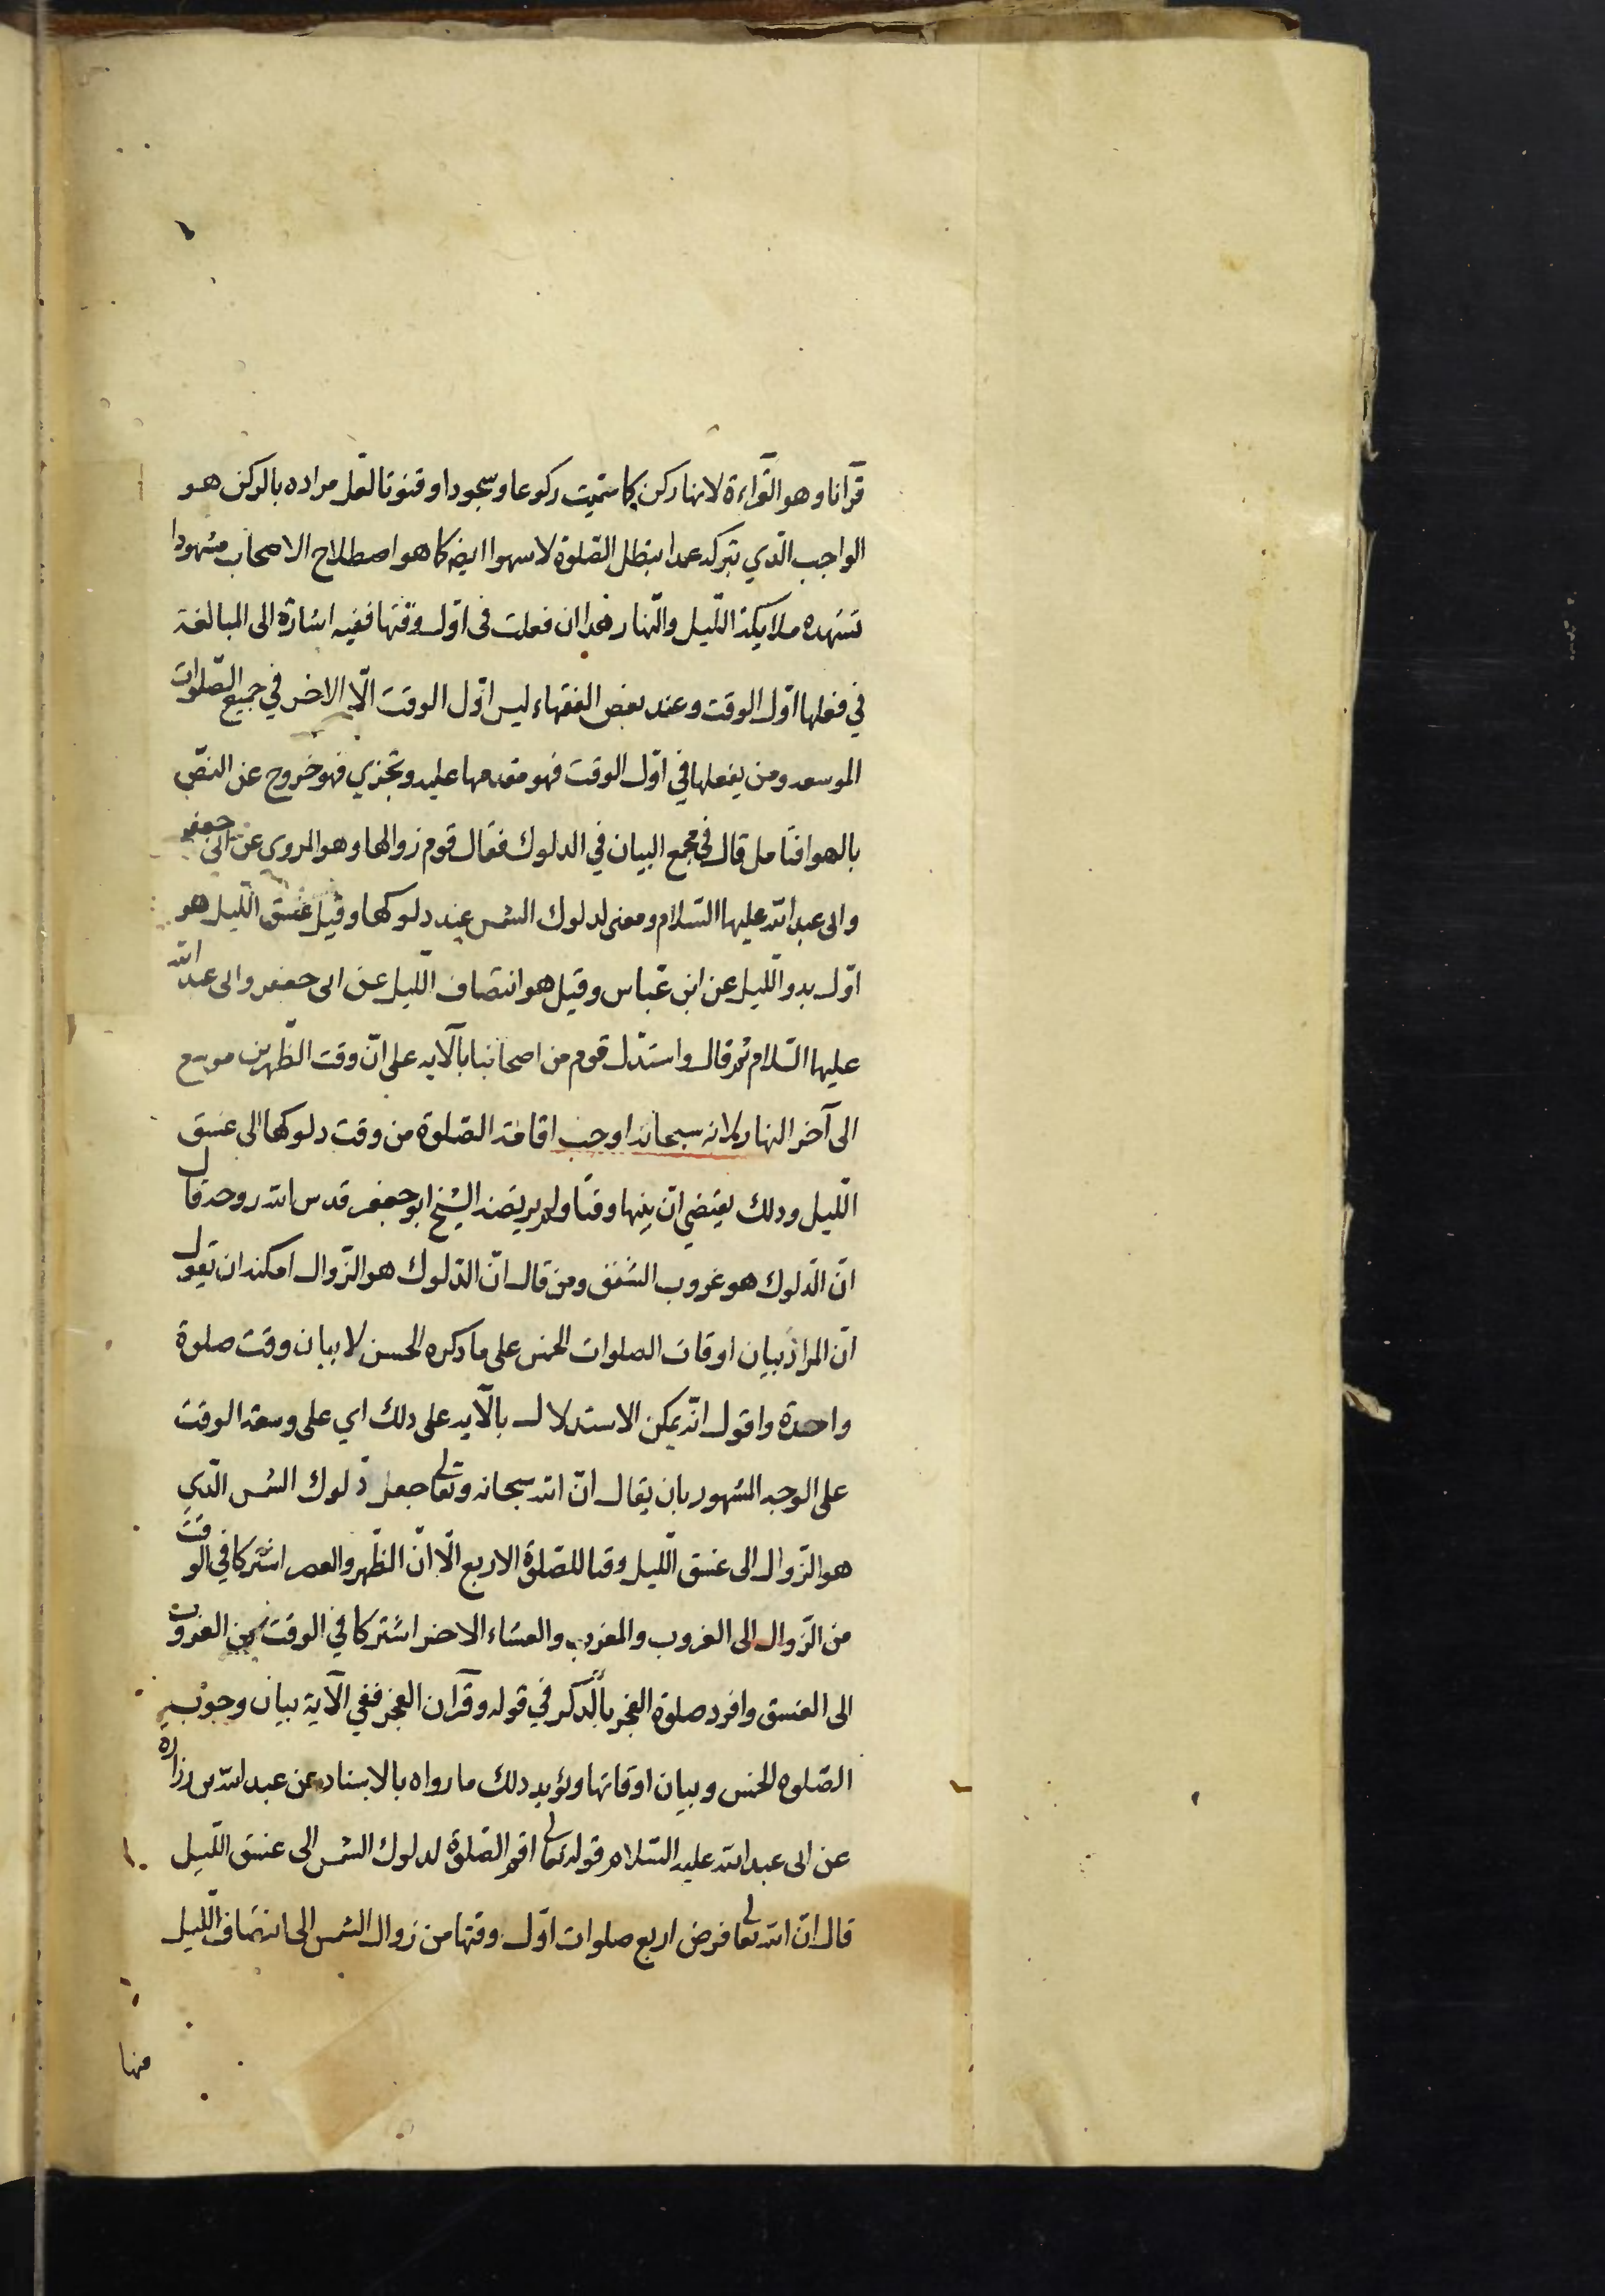 قرآنا وهو القراءة لانها ركن كما سميت ركوعا وسجودا وقنوتا لعل مراده بالركن هو
الواجب الذي بتركه عمدا يبطل الصلوة لا سهوا ايضا كما هو اصطلاح الاصحاب مشهودا
تشهده ملايكة الليل والنهار فهذا ان فعلت فى اول وقتها ففيه اشارة الى المبالغة
في فعلها اول الوقت وعند بعض الفقهاء ليس اول الوقت الا الاخر في جميع الصلوات
الموسعه ومن يفعلها في اول الوقت فهو مقدمها عليه وتجزي فهو خروج عن النص
بالهوا فتامل قال في مجمع البيان في الدلوك فقال قوم زوالها وهو المروى عن ابى جعفر
وابى عبد الله عليهما السلام ومعنى لدلوك الشمس عند دلوكها وقيل غسق الليل هو
اول بدو الليل عن ابن عباس وقيل هو انتصاف الليل عن ابى جعفر وابى عبد الله
عليهما السلام ثم قال واستدل قوم من اصحابنا بالآيه على ان وقت الظهرين موسع
الى آخر النهار لانه سبحانه اوجب اقامة الصلوة من وقت دلوكها الى غسق
الليل وذلك يقتضي ان بينهما وقتا ولم يرتضه الشيخ ابو جعفر قدس الله روحه قال
ان الدلوك هو غروب الشفق ومن قال ان الدلوك هو الزوال امكنه ان يقول
ان المراد بيان اوقات الصلوات الخمس على ما ذكره الحسن لا بيان وقت صلوة
واحدة واقول انه يمكن الاستدلال بالآيه على ذلك اي على وسعة الوقت
على الوجه المشهور بان يقال ان الله سبحانه وتعالى جعل دلوك الشمس الذي
هو الزوال الى غسق الليل وقتا للصلوة الاربع الا ان الظهر والعصر اشتركا في الوقت
من الزوال الى الغروب والمغرب والعشاء الاخر اشتركا في الوقت من الغروب
الى الغسق وافرد صلوة الفجر بالذكر في قوله وقرآن الفجر ففي الآية بيان وجوب
الصلوه الخمس وبيان اوقاتها ويؤيد ذلك ما رواه بالاسناد عن عبد الله بن زرارة
عن ابى عبد الله عليه السلام قوله تعالى اقم الصلوة لدلوك الشمس الى غسق الليل
قال ان الله تعالى فرض اربع صلوات اول وقتها من زوال الشمس الى انتصاف الليل
منها